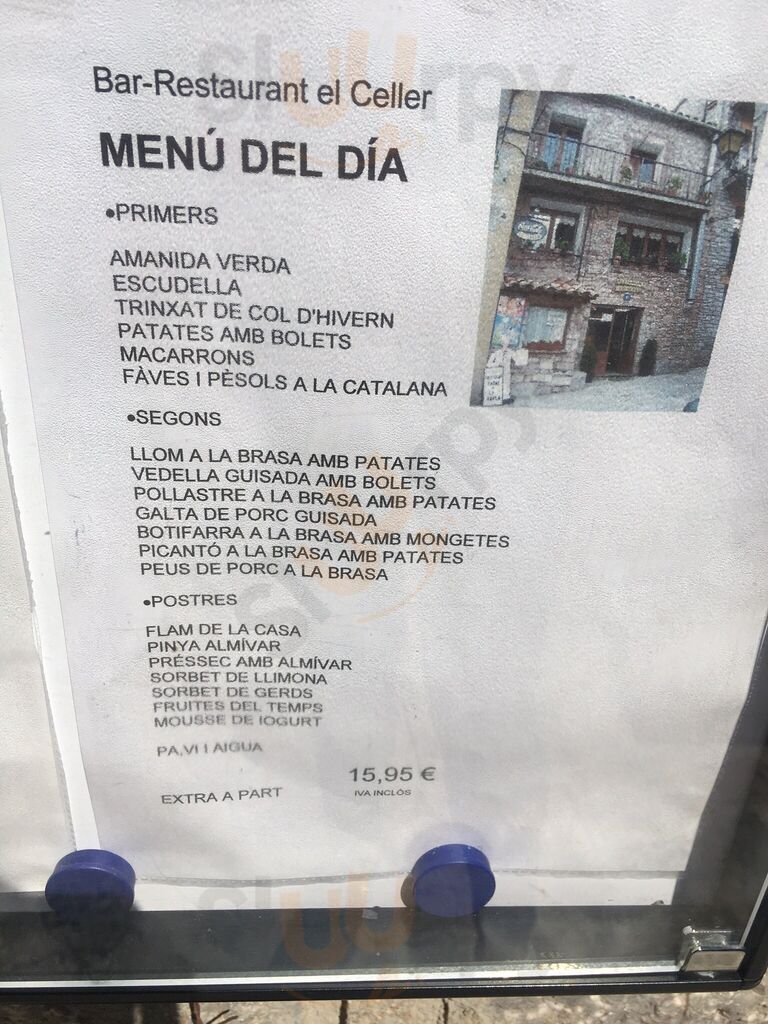 Bar-Restaurant el Celler
MENÚ DEL DÍA
•PRIMERS
AMANIDA VERDA
ESCUDELLA
TRINXAT DE COL D'HIVERN
PATATES AMB BOLETS
MACARRONS
FÀVES I PÈSOLS A LA CATALANA
•SEGONS
LLOM A LA BRASA AMB PATATES
VEDELLA GUISADA AMB BOLETS
POLLASTRE A LA BRASA AMB PATATES
GALTA DE PORC GUISADA
BOTIFARRA A LA BRASA AMB MONGETES
PICANTÓ A LA BRASA AMB PATATES
PEUS DE PORC A LA BRASA
•POSTRES
FLAM DE LA CASA
PINYA ALMÍVAR
PRÉSSEC AMB ALMÍVAR
SORBET DE LLIMONA
SORBET DE GERDS
FRUITES DEL TEMPS
MOUSSE DE IOGURT
PA,VI I AIGUA
15,95 €
IVA INCLÒS
EXTRA A PART
Coca-Cola
sluurpy
sluurpy
sluurpy
sluurpy